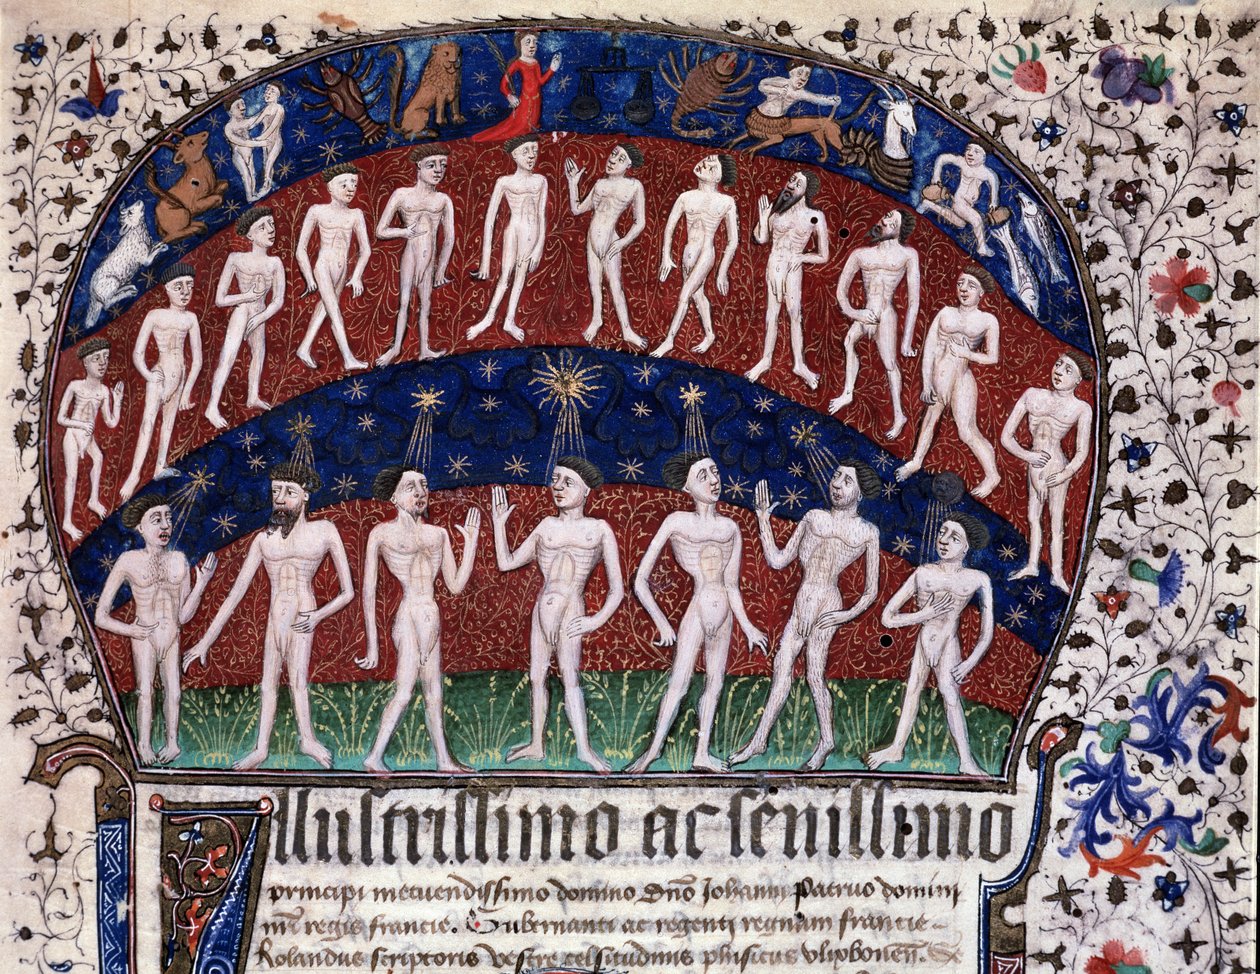 Illustrissimo ac serenissimo
principi metuendissimo domino Dno Johanni Patruo domini
nri regis francie. Gubernanti ac regenti regnum francie
Rolandus scriptoris vestre celsitudinis phisicus vlixbonen̄. Se